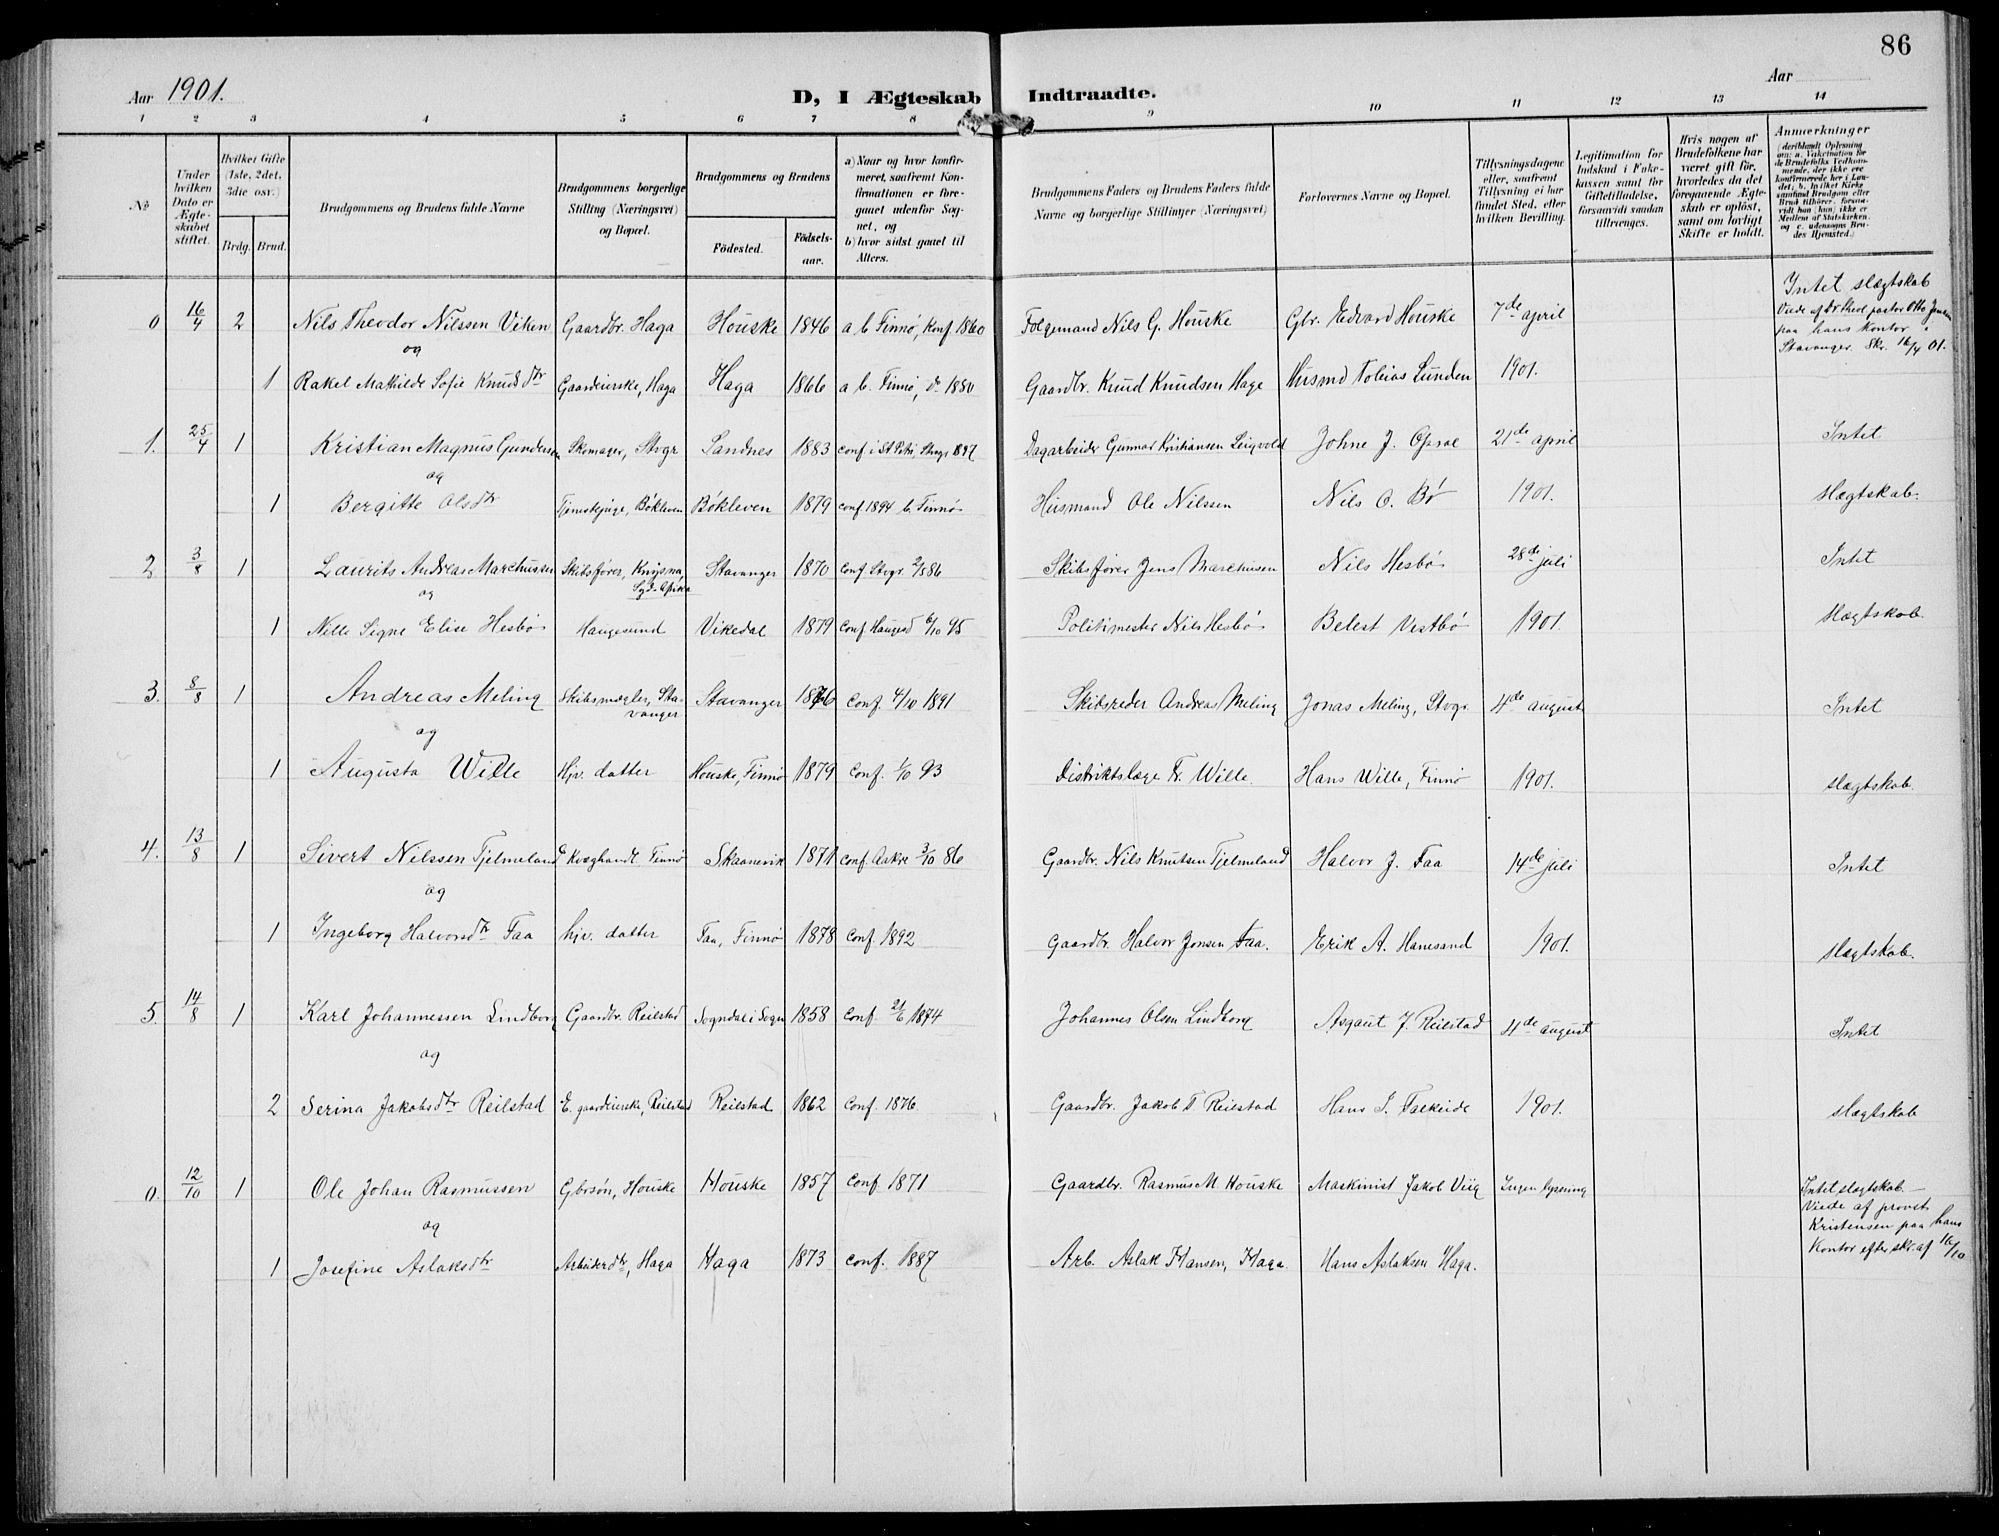 86
Aar 1901.
D, I Ægteskab Indtraadte.
Aar
1 2 3 4 5 6 7 8 9 10 11 12 13 14
No
Under hvilken Dato er Ægteskabet stiftet.
Hvilket Gifte (1ste, 2det, 3die osv.)
Brdg. Brud.
Brudgommens og Brudens fulde Navne
Brudgommens borgerlige Stilling (Næringsvei) og Bopæl.
Brudgommens og Brudens
Födested. Födselsaar.
a) Naar og hvor konfirmeret, saafremt Konfirmationen er foregaaet udenfor Sognet, og
b) hvor sidst gaaet til Alters.
Brudgommens Faders og Brudens Faders fulde Navne og borgerlige Stillinger (Næringsvei)
Forlovernes Navne og Bopæl.
Tillysningsdagene eller, saafremt Tillysning ei har fundet Sted, efter hvilken Bevilling.
Legitimation for Indskud i Enkekassen samt for Giftetilladelse, forsaavidt saadan tiltrænges.
Hvis nogen af Brudefolkene har været gift før, hvorledes da det foregaaende Ægteskab er oplöst, samt om lovligt Skifte er holdt.
Anmærkninger
(deriblandt Oplysning om: a. Vakcination for de Brudefolks Vedkommende, der ikke ere konfirmerede her i Landet; b. hvilket Kirkesamfund Brudgom eller Brud tilhörer, forsaavidt han (hun) ikke er Medlem af Statskirken, og c. udensogns Brudes Hjemsted.)
0 16/4 2 Nils Theodor Nilssen Viken Gaardbr. Haga Houske 1846 a, b Finnø, Konf 1860 Folgemand Nils G. Houske Gbr. Edvard Houske 7de april Intet slægtskab
Viede af Dr theol pastor Otto Jensen
paa hans Kontor i
Stavanger. Skr. 16/4 01.
og
1 Rakel Mathilde Sofie Knudsdtr Gaardeierske, Haga Haga 1866 a b. Finnø, do 1880 Gaardbr. Knud Knudsen Hage Husmd Tobias Lunden 1901.
1. 25/4 1 Kristian Magnus Gundersen Skomager, Stvgr Sandnes 1883 conf i St Petri, Stvgr 1897 Dagarbeider Gunnar Kristiansen Leiqvold Johne J. Opsal 21de april Intet
og
1 Bergitte Olsdtr Tjenestepige, Bökleven Bökleven 1879 conf 1894 b. Finnø Husmand Ole Nilssen Nils O. Bø 1901. slægtskab.
2 3/8 1 Laurits Andreas Marchussen Skibsfører, Knysna, Syd-Afrika Stavanger 1870 conf Stvgr. 2/5 86 Skibsfører Jens Marchusen Nils Hesbø 28de juli Intet
og
1 Nille Signe Elise Hesbø Haugesund Vikedal 1879 conf Haugesd 6/10 95 Politimester Nils Hesbø Belest Vestbø 1901. slægtskab.
3. 8/8 1 Andreas Meling Skibsmægler, Stavanger Stavanger 1876 conf. 4/10 1891 Skibsreder Andreas Meling Jonas Meling, Stvgr 4de august Intet
og
1 Augusta Wille Hjv. datter Houske, Finnø 1879 conf. 1/10 93 Distriktslæge Fr. Wille Hans Wille, Finnø 1901. slægtskab.
4. 13/8 1 Sivert Nilssen Tjelmeland Kvæghandl. Finnø Skaanevik 1871 conf Aakre 3/10 86 Gaardbr. Nils Knutsen Tjelmeland Halvor J. Faa 14de juli Intet
og
1 Ingeborg Halvorsdtr Faa hjv. datter Faa, Finnø 1878 conf 1892 Gaardbr. Halvor Jonsen Faa. Erik A. Hanesand 1901. slægtskab.
5. 14/8 1 Karl Johannessen Lindborg Gaardbr. Reilstad Sogndal i Sogn 1858 conf. 21/6 1874 Johannes Olsen Lindborg Asgaut J. Reilstad 4de august Intet
og
2 Serina Jakobsdtr Reilstad E. gaardeierske, Reilstad Reilstad 1862 conf. 1876 Gaardbr. Jakob T Reilstad Hans I. Falkeide 1901. slægtskab
0. 12/10 1 Ole Johan Rasmussen Gbrsøn, Houske Houske 1857 conf 1871 Gaardbr. Rasmus M Houske Maskinist Jakob Viig Ingen lysning Intet slægtskab –
Viede af provst
Kristensen paa hans
Kontor efter skr. af 16/10
og
1 Josefine Aslaksdtr Arbeiderdtr, Haga Haga 1873 conf. 1887 Arb. Aslak Hansen, Haga. Hans Aslaksen Haga.